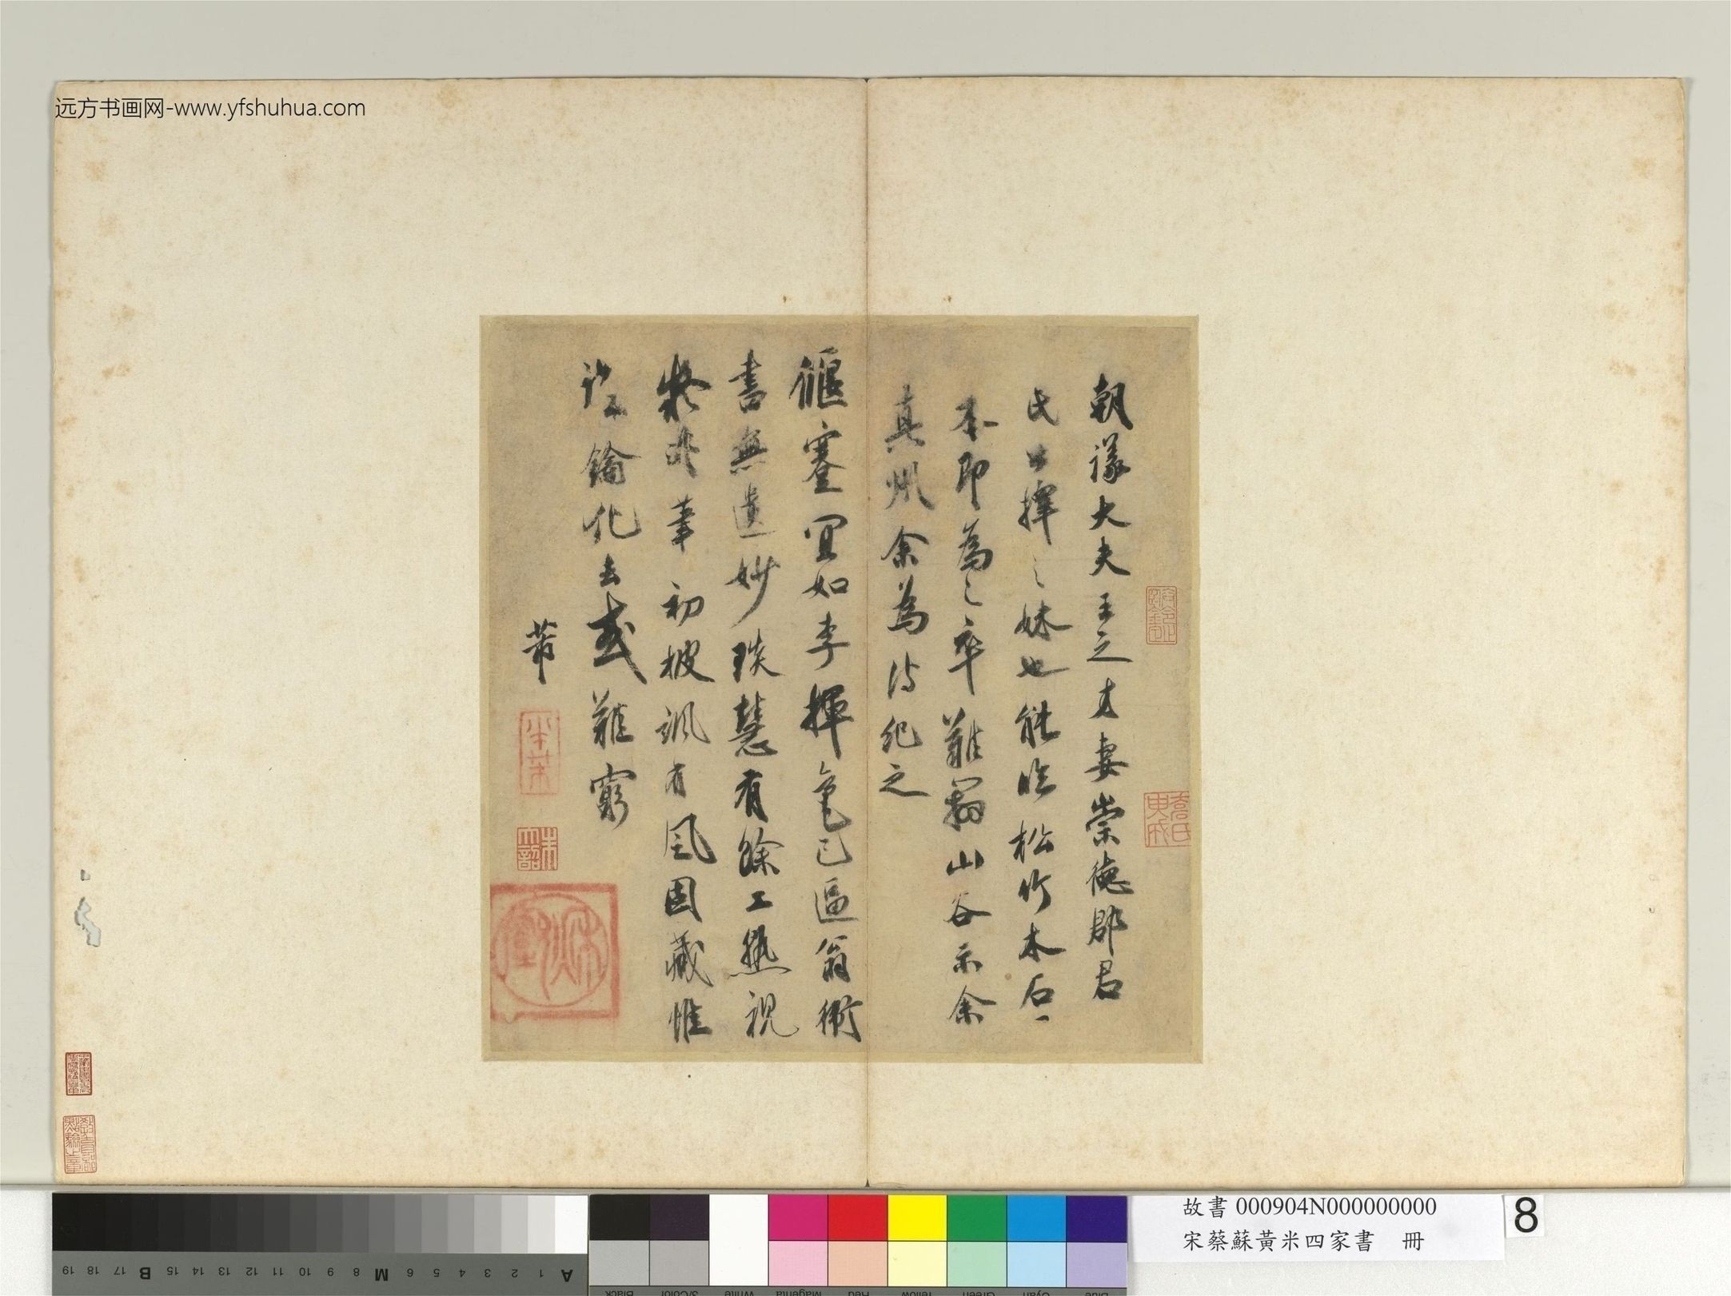 远方书画网-www.yfshuhua.com
朝議大夫王之才妻崇德郡君
氏公擇之妹也能臨松竹木石
本即為之卒難山谷示余
真州余為詩紀之
偃蹇宜如李揮毫已逼翁衛
書無遺妙琰慧有餘工熟視
疑非筆初披颯有風固藏惟
謹鑰化去或難窮
芾
故書 000904N000000000
宋蔡蘇黃米四家書 冊
8
19 18 17 B 16 15 14 13 12 11 10 9 8 M 7 6 5 4 3 2 1 A
Black 3/Color White Magenta Red Yellow Green Cyan Blue